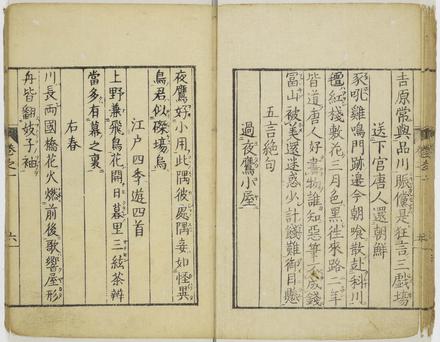 吉原常與品川賑僅是狂言三戲場
送下官唐人還朝鮮
豕吼雞鳴門跡邊今朝喰散赴科川
紅棧敷花三月色黑往來路二年
皆道唐人好書物誰知惡筆不成錢
富山被美還迷惑少計錢難御目懸
五言絶句
過夜鷹小屋
夜鷹好小用此隅彼處隅妾如怪異
鳥君似磔場烏
江戸四季遊四首
上野兼飛鳥花開日暮里三絃茶辨
當多有幕之裏
右春
川長両國橋花火燃前後歌響屋形
舟皆翻妓子袖
卷之一
六